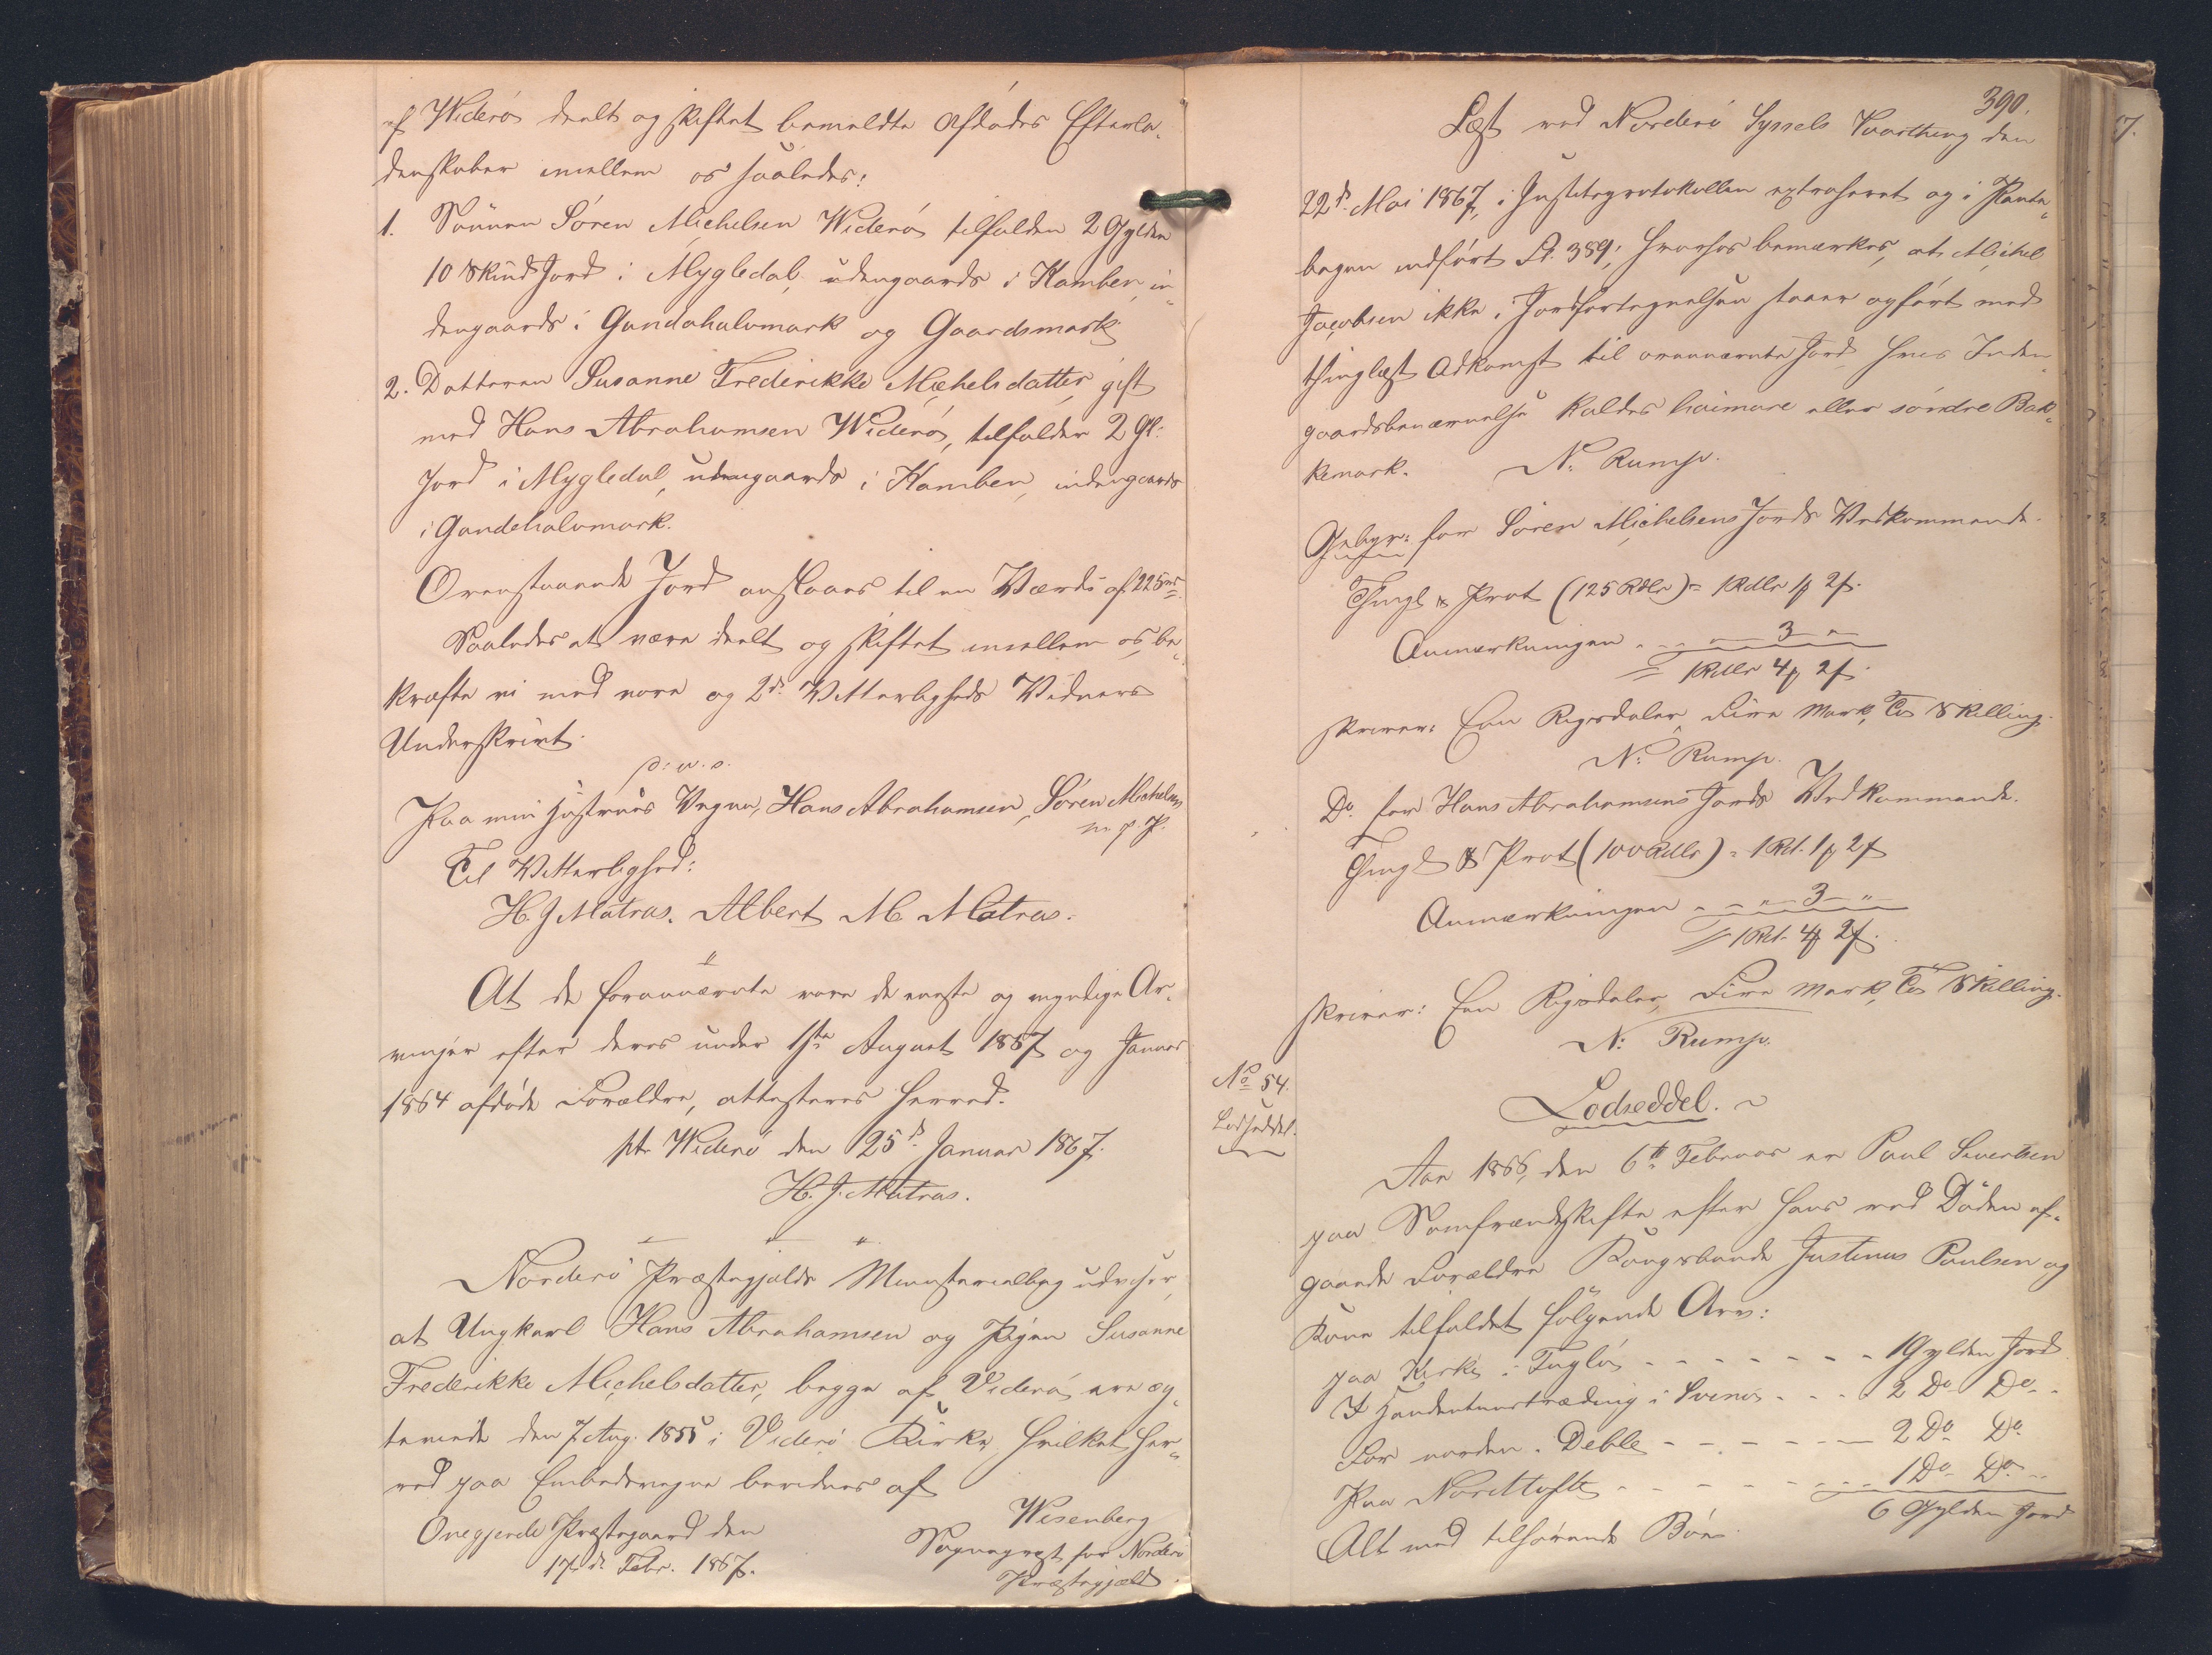 af Widerø deelt og skiftet bemeldte Afdødes Efterla-
denskaber imellem os saaledes:
1. Sønnen Søren Michelsen Widerø tilfalden 2 Gylden
10 Skind Jord i Mygledal, udengaards i Kamben, in-
dengaards i Gandahalvmark og Gaardsmark
2. Datteren Susanne Frederikke Michelsdatter, gift
med Hans Abrahamsen Widerø, tilfalder 2 Gl:
Jord i Mygledal, udengaards i Kamben, indengaards
i Gandehalvmark.
Ovenstaaende Jord anslaaes til en Værdi af 225
Saaledes at være deelt og skiftet imellem os, be-
kræfte vi med vore og 2de Vitterligheds Vidners
Underskrivt.
Paa min Hustrues Vegne, Hans Abrahamsen, Søren Michelsen
m. p. P.
Til Vitterlighed:
H. J. Matras. Albert M. Matras.
At de forannævnte vare de eneste og myndige Ar-
vinger efter deres under 1ste August 1857 og Januar
1864 afdøde Forældre, attesteres herved.
pt. Widerø den 25de Januar 1867.
H. J. Matras.
Norderø Præstegjælds Ministerialbog udviser,
at Ungkarl Hans Abrahamsen og Pigen Susanne
Frederikke Michelsdatter, begge af Viderø, ere æg-
teviede den 7 Aug. 1855 i Viderø Kirke, hvilket her-
ved paa Embedsvegne bevidnes af
Onegjerde Præstegaard den
17de Febr. 1867.
Wesenberg
Sognepræst for Norderø
Præstegjæld.
390.
Læst ved Norderø Syssels Vaarthing den
22de Mai 1867, i Justitsprotokollen extraheret og i Pante-
bogen indført Fl. 389; hvorhos bemærkes, at Michel
Jacobsen ikke i Jordfortegnelsen staaer opført med
thinglæst Adkomst til ovennævnte Jord, hvis Inden-
gaardsbenævnelse kaldes haimare eller søndre Bak-
kemark. N. Rump.
Gebyr: for Søren Michelsens Jords Vedkommende.
Thingl & Prot (125 Rdlr) = 1 Rdlr 1 ꝑ 2 ſ.
Anmærkningen - - - " - 3 - "
= 1 Rdlr 4 ꝑ 2 ſ.
skriver: Een Rigsdaler, Fire Mark, To Skilling.
N. Rump.
Do for Hans Abrahamsens Jords Vedkommende.
Thingl & Prot (100 Rdlr) = 1 Rd. 1 ꝑ 2 ſ
Anmærkningen - - - " - 3 - "
= 1 Rd. 4 ꝑ 2 ſ.
skriver: Een Rigsdaler, Fire Mark, To Skilling.
N. Rump.
No 54.
Lodseddel.
Lodseddel.
Aar 1866, den 6te Februar er Poul Sivertsen
paa Samfrændeskifte efter hans ved Døden af-
gaaede Forældre Kongsbonde Justinus Poulsen og
Kone tilfaldet følgende Arv:
paa Kirke i Fuglø - - - - - - 1 Gylden Jord
i Svinø - - - 2 Do Do.
For norden i Deble - - - - - 2 Do Do
Paa Nordtofte - - - - - 1 Do Do
6 Gylden Jord
Alt med tilhørende